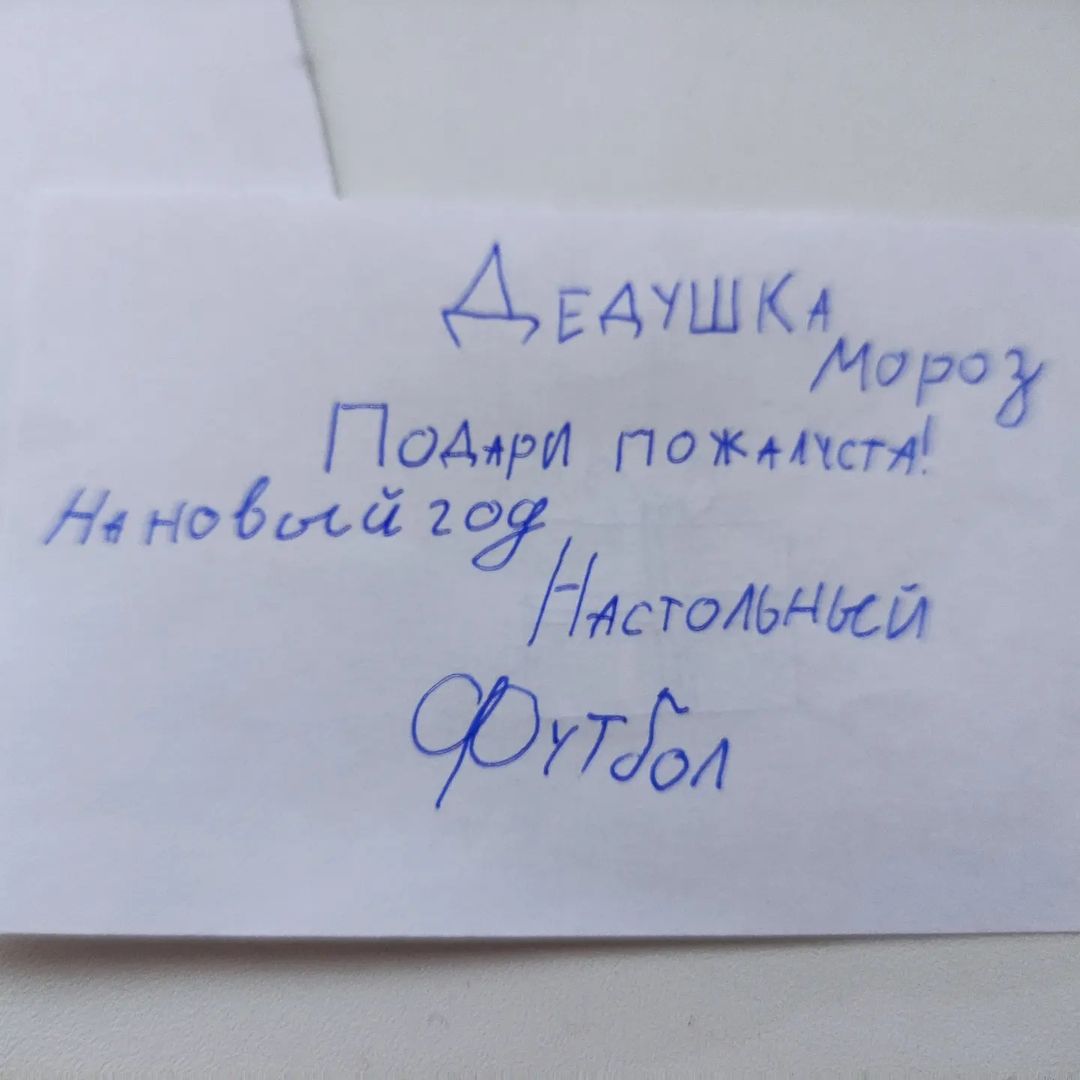 Дедушка
мороз
Подари пожалуста!
На новый год
Настольный
Футбол